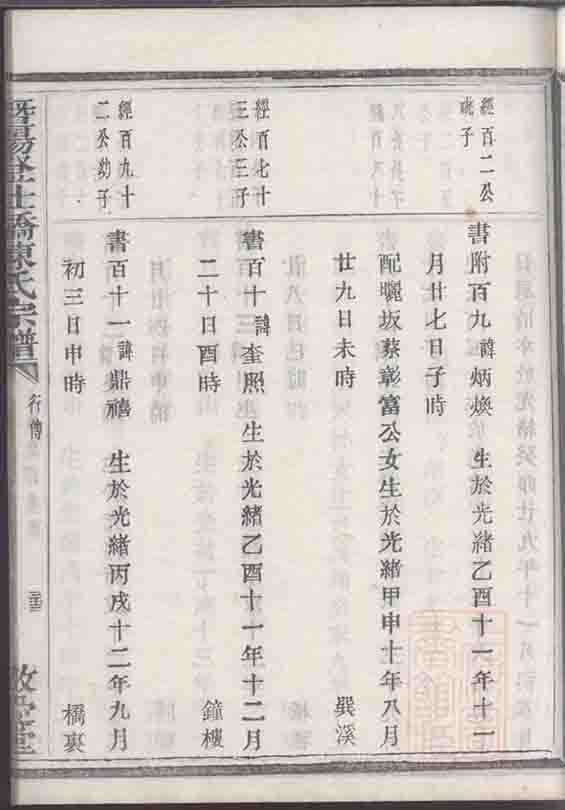 經百二公
晓子
書附百九諱炳煥 生於光緒乙酉十一年十一
月廿七日子時
配曬坂蔡彰富公女生於光緒甲申十年八月
廿九日未時 巽溪
經百七十
三公三子
書百十諱奎照 生於光緒乙酉十一年十二月
二十日酉時 鐘樓
經百九十
二公幼子
書百十一諱鼎禧 生於光緒丙戌十二年九月
初三日申時 橋裏
暨陽 仕橋陳氏宗譜
行傳
敦 堂